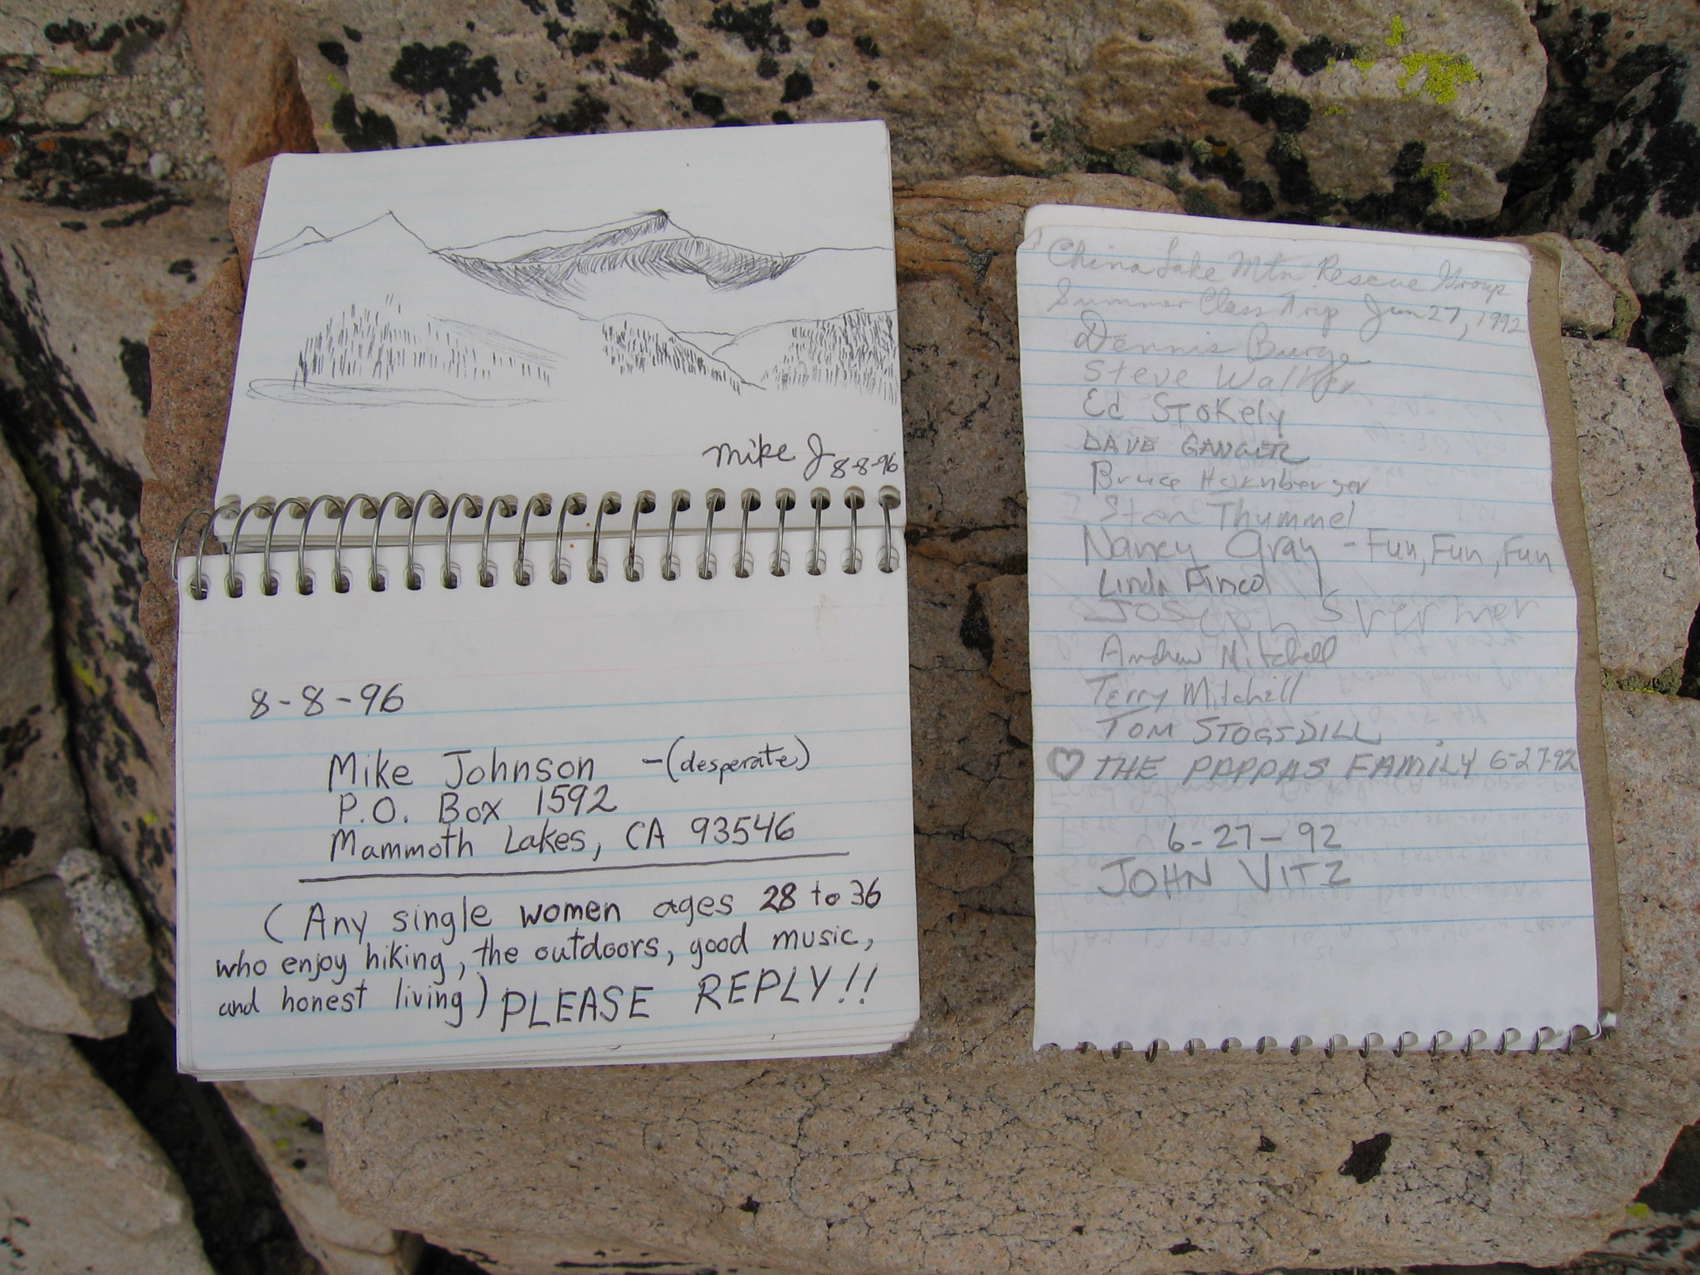 Mike J 8-8-96
8-8-96
Mike Johnson - (desperate)
P.O. Box 1592
Mammoth Lakes, CA 93546
(Any single women ages 28 to 36
who enjoy hiking, the outdoors, good music,
and honest living) PLEASE REPLY!!
China Lake Mtn Rescue Group
Summer Class Trip Jun 27, 1992
Dennis Burge
Steve Walker
Ed Stokely
DAVE GANGER
Bruce Haknberger
Stan Thummel
Nancy Gray - Fun, Fun, Fun
Linda Finco
Joseph
Andrew Mitchell
Terry Mitchell
TOM STOGSDILL
♡ THE PAPPAS FAMILY 6-27-92
6-27-92
JOHN VITZ